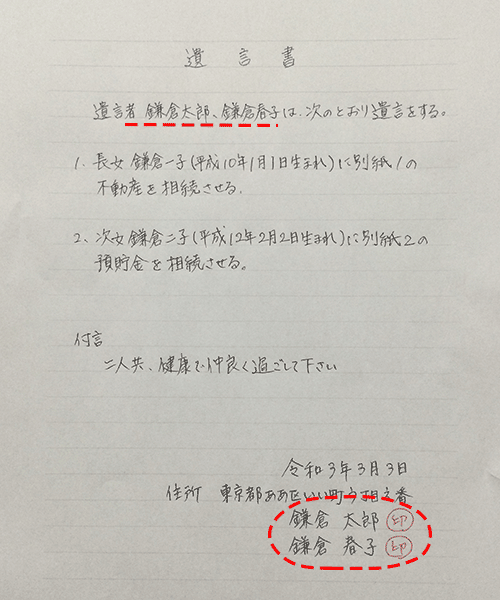 遺言書
遺言者 鎌倉太郎、鎌倉春子は、次のとおり遺言をする。
1. 長女 鎌倉一子(平成10年1月1日生まれ)に別紙1の
不動産を相続させる。
2、次女 鎌倉二子(平成12年2月2日生まれ)に別紙2の
預貯金を相続させる。
付言
二人共、健康で仲良く過ごして下さい
令和3年3月3日
住所 東京都ああ区いい町う相え番
鎌倉 太郎 印
鎌倉 春子 印